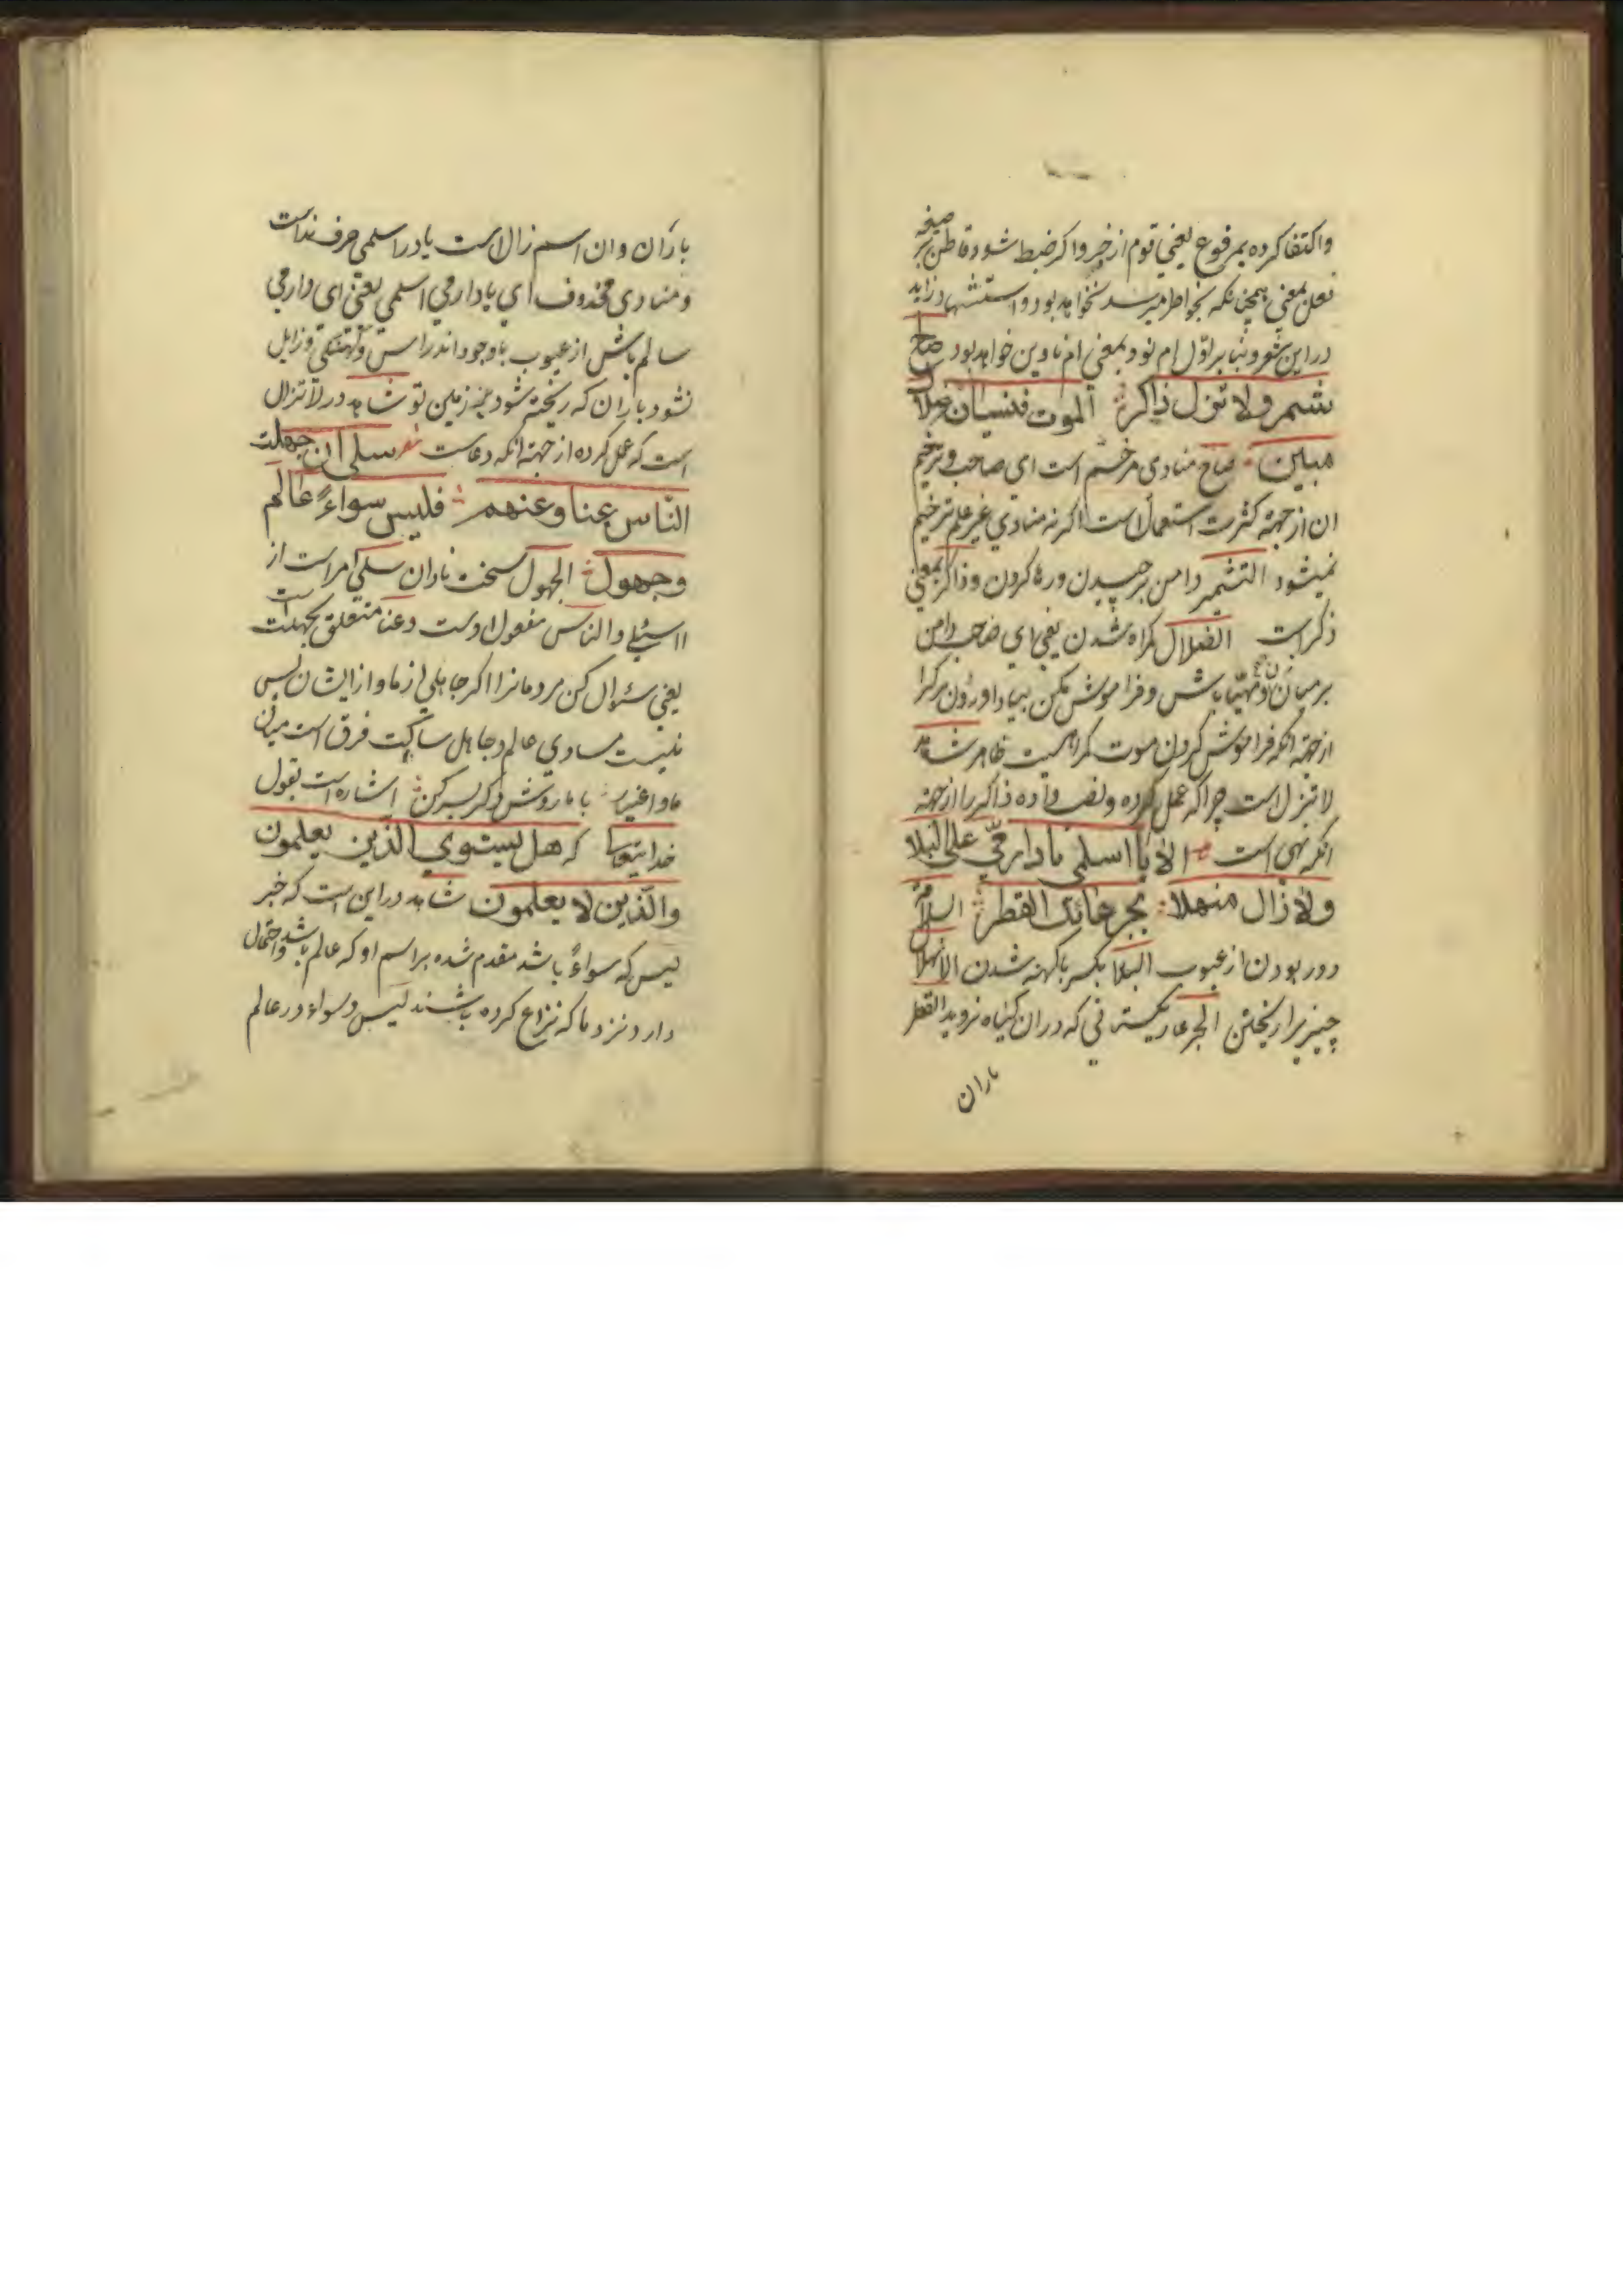 واکتفا کرده بمرفوع یعنی قوم از خبر واکر ضبط شود قاطن بر صیغه
فعل بمعنی همچنانکه بخواطر میرسد نخواهد بود و استشهاد زاید
در این شعر و بنا بر اول ام نود بمعنی ام ناوین خواهد بود صاح
شمر ولا تزل ذاکر الموت فنسیان ضلال
مبین صاح منادی مرخم است ای صاحب و ترخیم
ان از جهة کثرت استعمال است اکر نه منادی غیر علم ترخیم
نمیشود التشمیر دامن برچیدن و رها کردن و ذاکر بمعنی
ذکر است الضلال کمراه شدن یعنی ای صاحب دامن
بر میان زن و مهیا باش و فراموش مکن بیاد اوردن مرکرا
از جهة انکه فراموش کردن موت کمراهیست ظاهر شاهد
لا تزل است چرا که عمل کرده و نصب داده ذاکر را از جهة
انکه نهی است الا یا اسلمی یا دارمی علی البلا
ولا زال منهلا بجرعائک القطر السلامة
دور بودن از عیوب البلا بکسر با کهنه شدن الانهلال
چیز را ریختن الجرعا ریکستانی که در ان کیاه نروید القطر
باران
باران وان اسم زال است یا در اسلمی حرف نداست
و منادی محذوف ای یا دارمی اسلمی یعنی ای دارمی
سالم باش از عیوب با وجود اندراس و کهنکی و زایل
نشود باران که ریخته شود بر زمین تو شاهد در لا تزال
است که عمل کرده از جهة انکه دعاست شعر سلی ان جهلت
الناس عنا وعنهم فلیس سواءً عالم
وجهول الجهول سخت نادان سلی امر است از
اسئلی و الناس مفعول اوست و عنا متعلق بجهلت است
یعنی سئوال کن مردمانرا اکر جاهلی از ما و از ایشان پس
نیست مساوی عالم و جاهل ساکت فرق است میان
ما و اغیار با ما روش دکر بسر کن اشاره است بقول
خدایتعالی که هل یستوی الذین یعلمون
والذین لا یعلمون شاهد در این است که خبر
لیس که سواءً باشد مقدم شده بر اسم او که عالم باشد و احتمال
دارد نزد ما که نزاع کرده باشند لیس و سواء در عالم